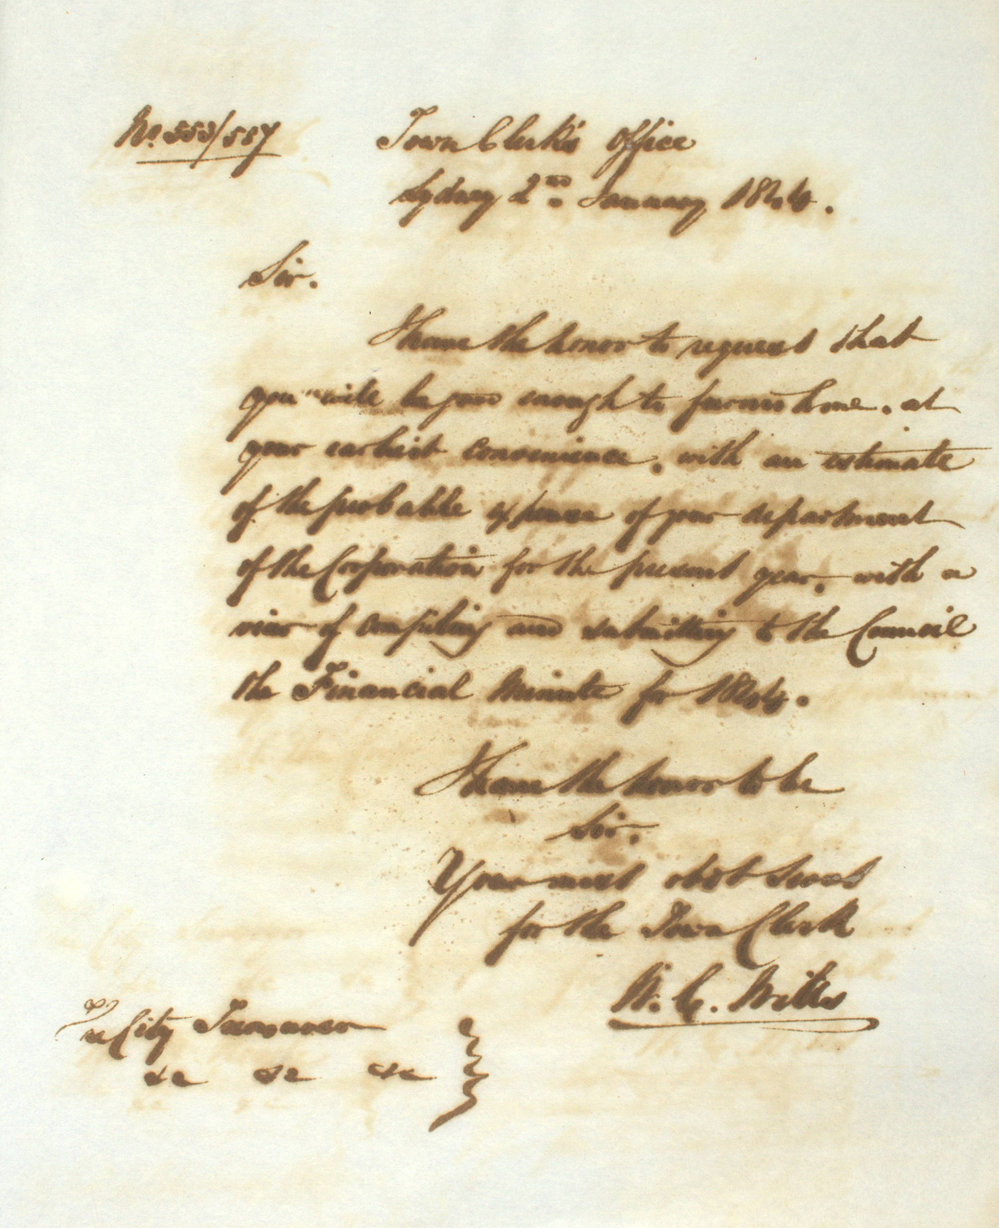 No. 553/557
Town Clerk's Office
Sydney 2nd. January 1844.
Sir.
I have the honor to request that
you will be good enough to furnish me, at
your earliest convenience, with an estimate
of the probable expense of your department
of the Corporation for the present year, with a
view of compiling and submitting to the Council
the Financial Minute for 1844.
I have the honor to be
Sir.
Your most obdt Servt
for the Town Clerk
W. C. Wills
The City Treasurer
&c &c &c